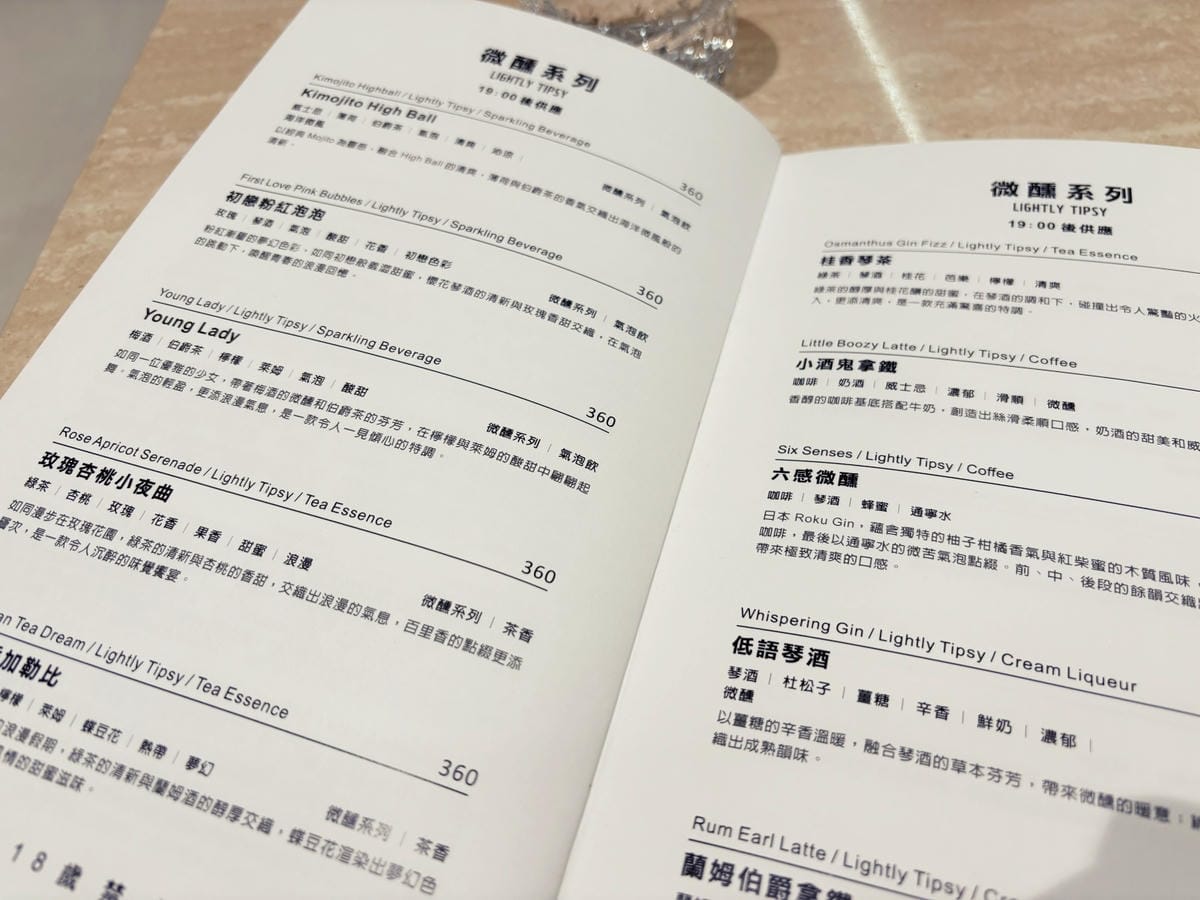 微醺系列
LIGHTLY TIPSY
19:00後供應
Kimojito Highball / Lightly Tipsy / Sparkling Beverage
Kimojito High Ball
360
威士忌 | 薄荷 | 伯爵茶 | 氣泡 | 清爽 | 沁涼 |
海洋微風
微醺系列 | 氣泡飲
以經典 Mojito 為靈感，融合 High Ball 的清爽，薄荷與伯爵茶的香氣交織出海洋微風般的
清新。
First Love Pink Bubbles / Lightly Tipsy / Sparkling Beverage
初戀粉紅泡泡
360
玫瑰 | 琴酒 | 氣泡 | 酸甜 | 花香 | 初戀色彩
微醺系列 | 氣泡飲
粉紅漸層的夢幻色彩，如同初戀般羞澀甜蜜，櫻花琴酒的清新與玫瑰香甜交織，在氣泡
的跳動下，喚醒青春的浪漫回憶。
Young Lady / Lightly Tipsy / Sparkling Beverage
Young Lady
360
梅酒 | 伯爵茶 | 檸檬 | 萊姆 | 氣泡 | 酸甜
微醺系列 | 氣泡飲
如同一位優雅的少女，帶著梅酒的微醺和伯爵茶的芬芳，在檸檬與萊姆的酸甜中翩翩起
舞。氣泡的輕盈，更添浪漫氣息，是一款令人一見傾心的特調。
Rose Apricot Serenade / Lightly Tipsy / Tea Essence
玫瑰杏桃小夜曲
360
綠茶 | 杏桃 | 玫瑰 | 花香 | 果香 | 甜蜜 | 浪漫
微醺系列 | 茶香
如同漫步在玫瑰花園，綠茶的清新與杏桃的香甜，交織出浪漫的氣息，百里香的點綴更添
層次，是一款令人沉醉的味覺饗宴。
an Tea Dream / Lightly Tipsy / Tea Essence
加勒比
360
檸檬 | 萊姆 | 蝶豆花 | 熱帶 | 夢幻
微醺系列 | 茶香
的浪漫假期，綠茶的清新與蘭姆酒的醇厚交織，蝶豆花渲染出夢幻色
風情的甜蜜滋味。
18歲禁
微醺系列
LIGHTLY TIPSY
19:00後供應
Osmanthus Gin Fizz / Lightly Tipsy / Tea Essence
桂香琴茶
綠茶 | 琴酒 | 桂花 | 芭樂 | 檸檬 | 清爽
綠茶的醇厚與桂花釀的甜蜜，在琴酒的調和下，碰撞出令人驚豔的火
入，更添清爽，是一款充滿驚喜的特調。
Little Boozy Latte / Lightly Tipsy / Coffee
小酒鬼拿鐵
咖啡 | 奶酒 | 威士忌 | 濃郁 | 滑順 | 微醺
香醇的咖啡基底搭配牛奶，創造出絲滑柔順口感，奶酒的甜美和威
Six Senses / Lightly Tipsy / Coffee
六感微醺
咖啡 | 琴酒 | 蜂蜜 | 通寧水
日本 Roku Gin，蘊含獨特的柚子柑橘香氣與紅柴蜜的木質風味，
咖啡，最後以通寧水的微苦氣泡點綴。前、中、後段的餘韻交織
帶來極致清爽的口感。
Whispering Gin / Lightly Tipsy / Cream Liqueur
低語琴酒
琴酒 | 杜松子 | 薑糖 | 辛香 | 鮮奶 | 濃郁 |
微醺
以薑糖的辛香溫暖，融合琴酒的草本芬芳，帶來微醺的暖意；
織出成熟韻味。
Rum Earl Latte / Lightly Tipsy /
蘭姆伯爵拿鐵